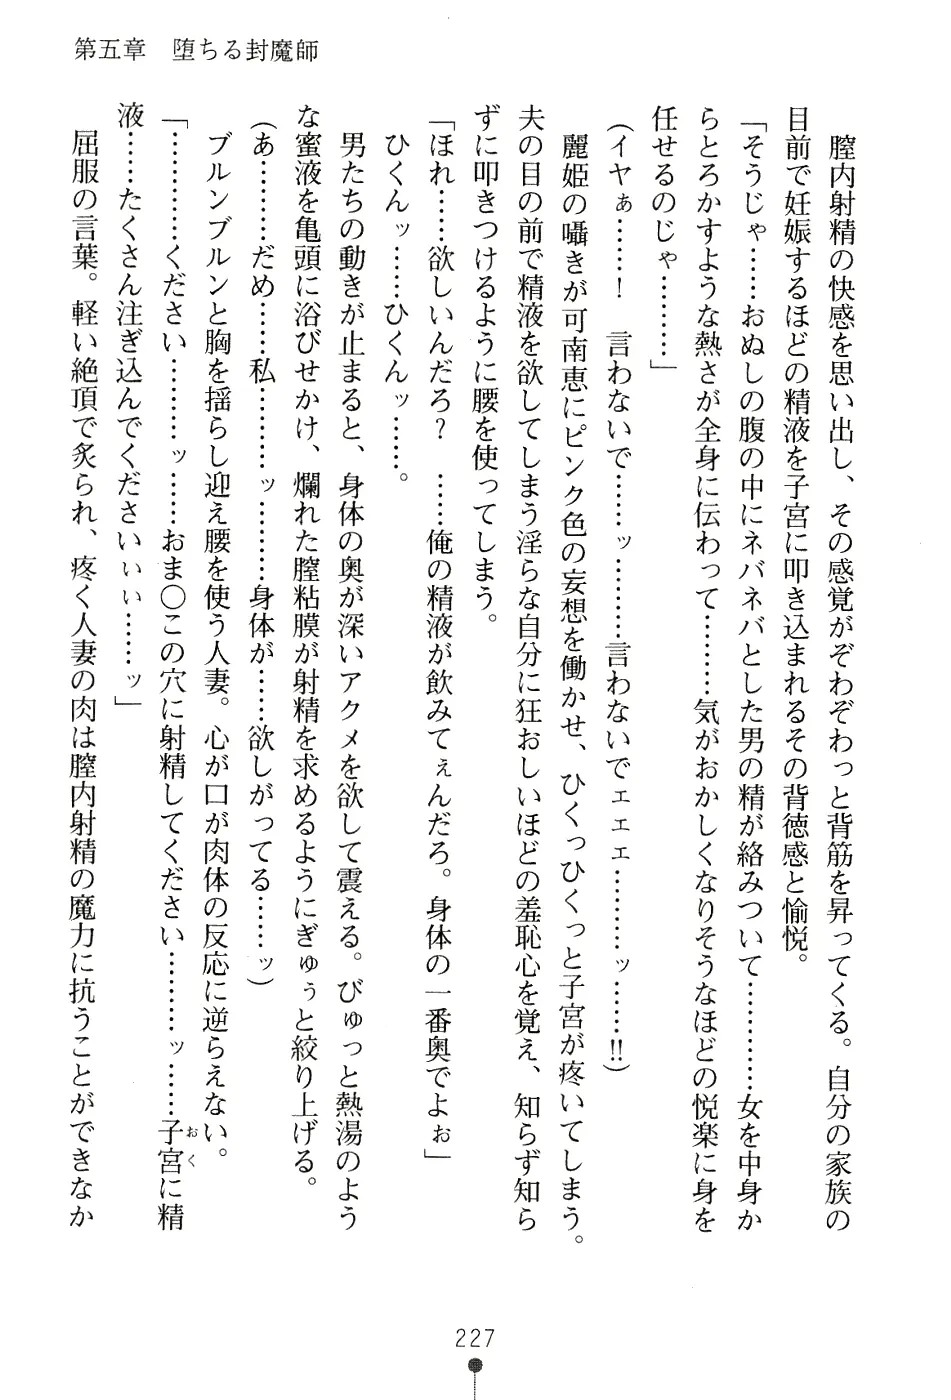 第五章　堕ちる封魔師
　膣内射精の快感を思い出し、その感覚がぞわぞわっと背筋を昇ってくる。自分の家族の
目前で妊娠するほどの精液を子宮に叩き込まれるその背徳感と愉悦。
「そうじゃ……おぬしの腹の中にネバネバとした男の精が絡みついて………女を中身か
らとろかすような熱さが全身に伝わって………気がおかしくなりそうなほどの悦楽に身を
任せるのじゃ………」
（イヤぁ……！　言わないで……ッ………言わないでェェェ………ッ……‼）
　麗姫の囁きが可南恵にピンク色の妄想を働かせ、ひくっひくっと子宮が疼いてしまう。
夫の目の前で精液を欲してしまう淫らな自分に狂おしいほどの羞恥心を覚え、知らず知ら
ずに叩きつけるように腰を使ってしまう。
「ほれ……欲しいんだろ？　……俺の精液が飲みてぇんだろ。身体の一番奥でよぉ」
　ひくんッ……ひくんッ……。
　男たちの動きが止まると、身体の奥が深いアクメを欲して震える。びゅっと熱湯のよう
な蜜液を亀頭に浴びせかけ、爛れた膣粘膜が射精を求めるようにぎゅぅと絞り上げる。
（あ………だめ……私………ッ………身体が……欲しがってる……ッ）
　ブルンブルンと胸を揺らし迎え腰を使う人妻。心が口が肉体の反応に逆らえない。
「…………ください………ッ……おま〇この穴に射精してください………ッ……子宮に精
おく
液……たくさん注ぎ込んでくださいぃぃ……ッ」
　屈服の言葉。軽い絶頂で炙られ、疼く人妻の肉は膣内射精の魔力に抗うことができなか
227